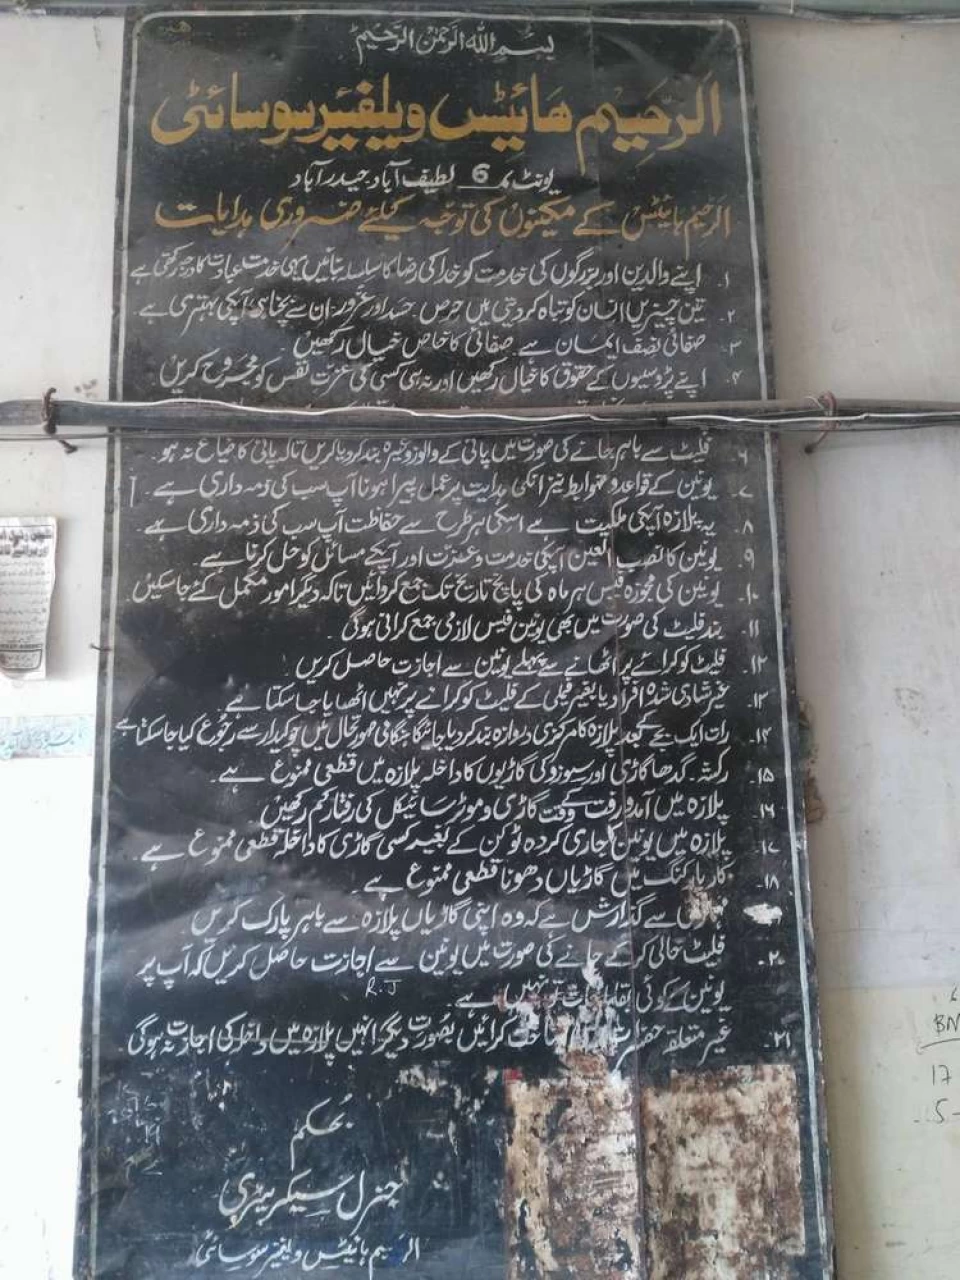 بسم اللہ الرحمٰن الرحیم
الرحیم ھائیٹس ویلفیئر سوسائٹی
یونٹ نمبر 6 لطیف آباد حیدرآباد
الرحیم ہائیٹس کے مکینوں کی توجہ کیلئے ضروری ہدایات
۱۔ اپنے والدین اور بزرگوں کی خدمت کو خدا کی رضا کا سلسلہ بنائیں یہی خدمت عبادت کا درجہ رکھتی ہے
۲۔ تین چیزیں انسان کو تباہ کر دیتی ہیں حرص حسد اور غرور ان سے بچنا ہی آپکی بہتری ہے
۳۔ صفائی نصف ایمان ہے صفائی کا خاص خیال رکھیں
۴۔ اپنے پڑوسیوں کے حقوق کا خیال رکھیں اور نہ ہی کسی کی عزت نفس کو مجروح کریں
۶۔ فلیٹ سے باہر جانے کی صورت میں پانی کے والوز وغیرہ بند کر دیا کریں تاکہ پانی کا ضیاع نہ ہو۔
۷۔ یونین کے قواعد و ضوابط نیز انکی ہدایت پر عمل پیرا ہونا آپ سب کی ذمہ داری ہے۔
۸۔ یہ پلازہ آپکی ملکیت ہے اسکی ہر طرح سے حفاظت آپ سب کی ذمہ داری ہے۔
۹۔ یونین کا نصب العین آپکی خدمت و عزت اور آپکے مسائل کو حل کرنا ہے۔
۱۰۔ یونین کی مجوزہ فیس ہر ماہ کی پانچ تاریخ تک جمع کروائیں تاکہ دیگر امور مکمل کئے جاسکیں
۱۱۔ بند فلیٹ کی صورت میں بھی یونین فیس لازمی جمع کرانی ہوگی۔
۱۲۔ فلیٹ کو کرائے پر اٹھانے سے پہلے یونین سے اجازت حاصل کریں
۱۳۔ غیر شادی شدہ افراد یا بغیر فیملی کے فلیٹ کو کرائے پر نہیں اٹھایا جا سکتا ہے۔
۱۴۔ رات ایک بجے کے بعد پلازہ کا مرکزی دروازہ بند کر دیا جائیگا ہنگامی صورتحال میں چوکیدار سے رجوع کیا جا سکتا ہے
۱۵۔ رکشہ۔ گدھا گاڑی اور سوزوکی گاڑیوں کا داخلہ پلازہ میں قطعی ممنوع ہے۔
۱۶۔ پلازہ میں آمد و رفت کے وقت گاڑی و موٹر سائیکل کی رفتار کم رکھیں
۱۷۔ پلازہ میں یونین کا جاری کردہ ٹوکن کے بغیر کسی گاڑی کا داخلہ قطعی ممنوع ہے۔
۱۸۔ کار پارکنگ میں گاڑیاں دھونا قطعی ممنوع ہے۔
سے گذارش ہے کہ وہ اپنی گاڑیاں پلازہ سے باہر پارک کریں
۲۰۔ فلیٹ خالی کر کے جانے کی صورت میں یونین سے اجازت حاصل کریں کہ آپ پر
یونین کے کوئی بقایاجات تو نہیں ہے۔
R.J
۲۱۔ غیر متعلقہ حضرات کرائیں بصورت دیگر انہیں پلازہ میں داخلہ کی اجازت نہ ہوگی۔
بحکم
جنرل سیکریٹری
الرحیم ہائیٹس ویلفیئر سوسائٹی
BN
17
5-